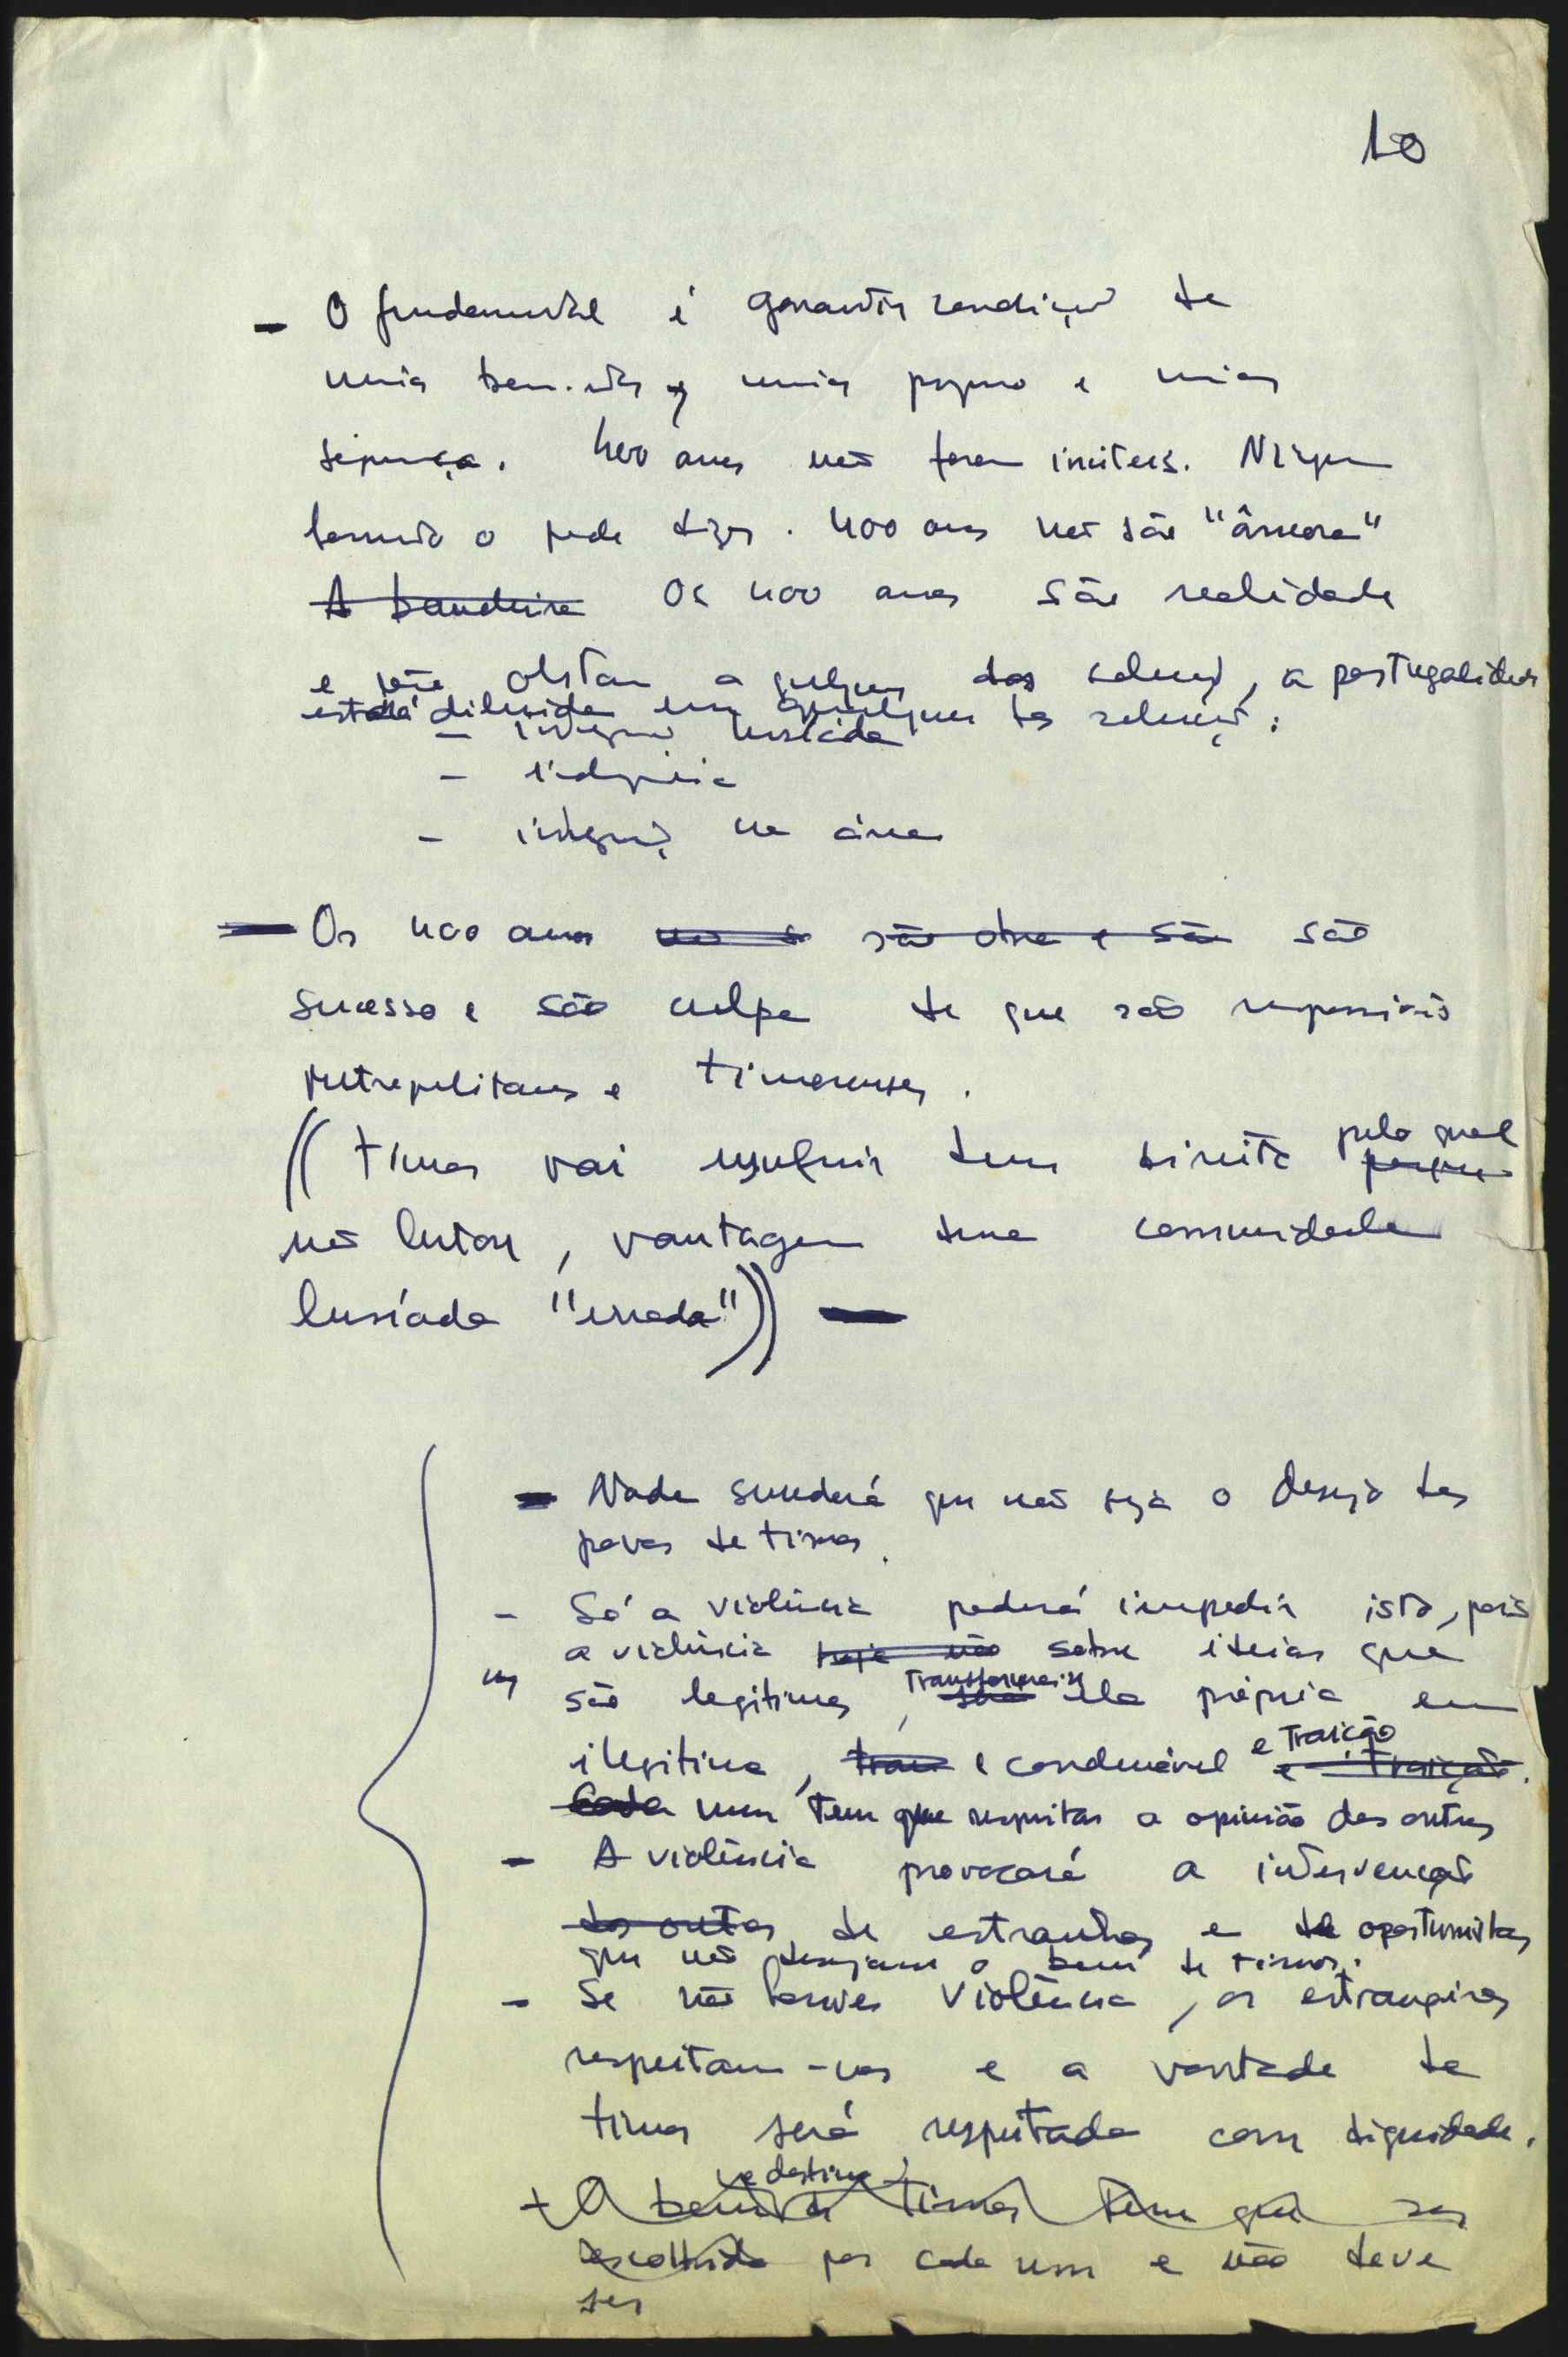 10
- O fundamental é garantir condições de
mais bem-estar, mais progresso e mais
segurança. 400 anos não foram inúteis. Ninguém
honesto o pode dizer. 400 anos não são "âncora"
A bandeira Os 400 anos são realidade
e não obstam a qualquer das soluções, a portugalidade
estará diluída em qualquer das soluções:
- integração lusíada
- independência
- integração na área
- Os 400 anos são obra e são são
sucesso e são culpa de que são responsáveis
metropolitanos e timorenses.
((Timor vai usufruir dum direito pelo qual
não lutou, vantagem duma comunidade
lusíada "errada")) -
- Nada sucederá que não seja o desejo dos
povos de Timor.
- Só a violência poderá impedir isto, pois
a violência hoje não sobre ideias que
são legítimas, transforma-se ela própria em
ilegítima, e condenável e traição e traição.
Cada um tem que respeitar a opinião dos outros
- A violência provocará a intervenção
dos outros de estranhos e de oportunistas
que não desejam o bem de Timor.
- Se não houver violência, os estrangeiros
respeitam-nos e a vontade de
Timor será respeitada com dignidade.
+ O destino Timor tem que ser
escolhido por cada um e não deve
ser